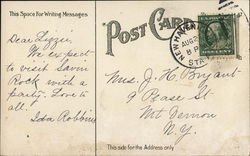 This Space For Writing Messages
POST CARD
Dear Lizzie,
We expect
to visit Savin
Rock with a
party. Love to
all.
Ida Robbins
NEW HAVEN
AUG
8 P
STA
Mrs. J. H. Bryant
9 Pease St
Mt Vernon
N.Y.
This side for the Address only